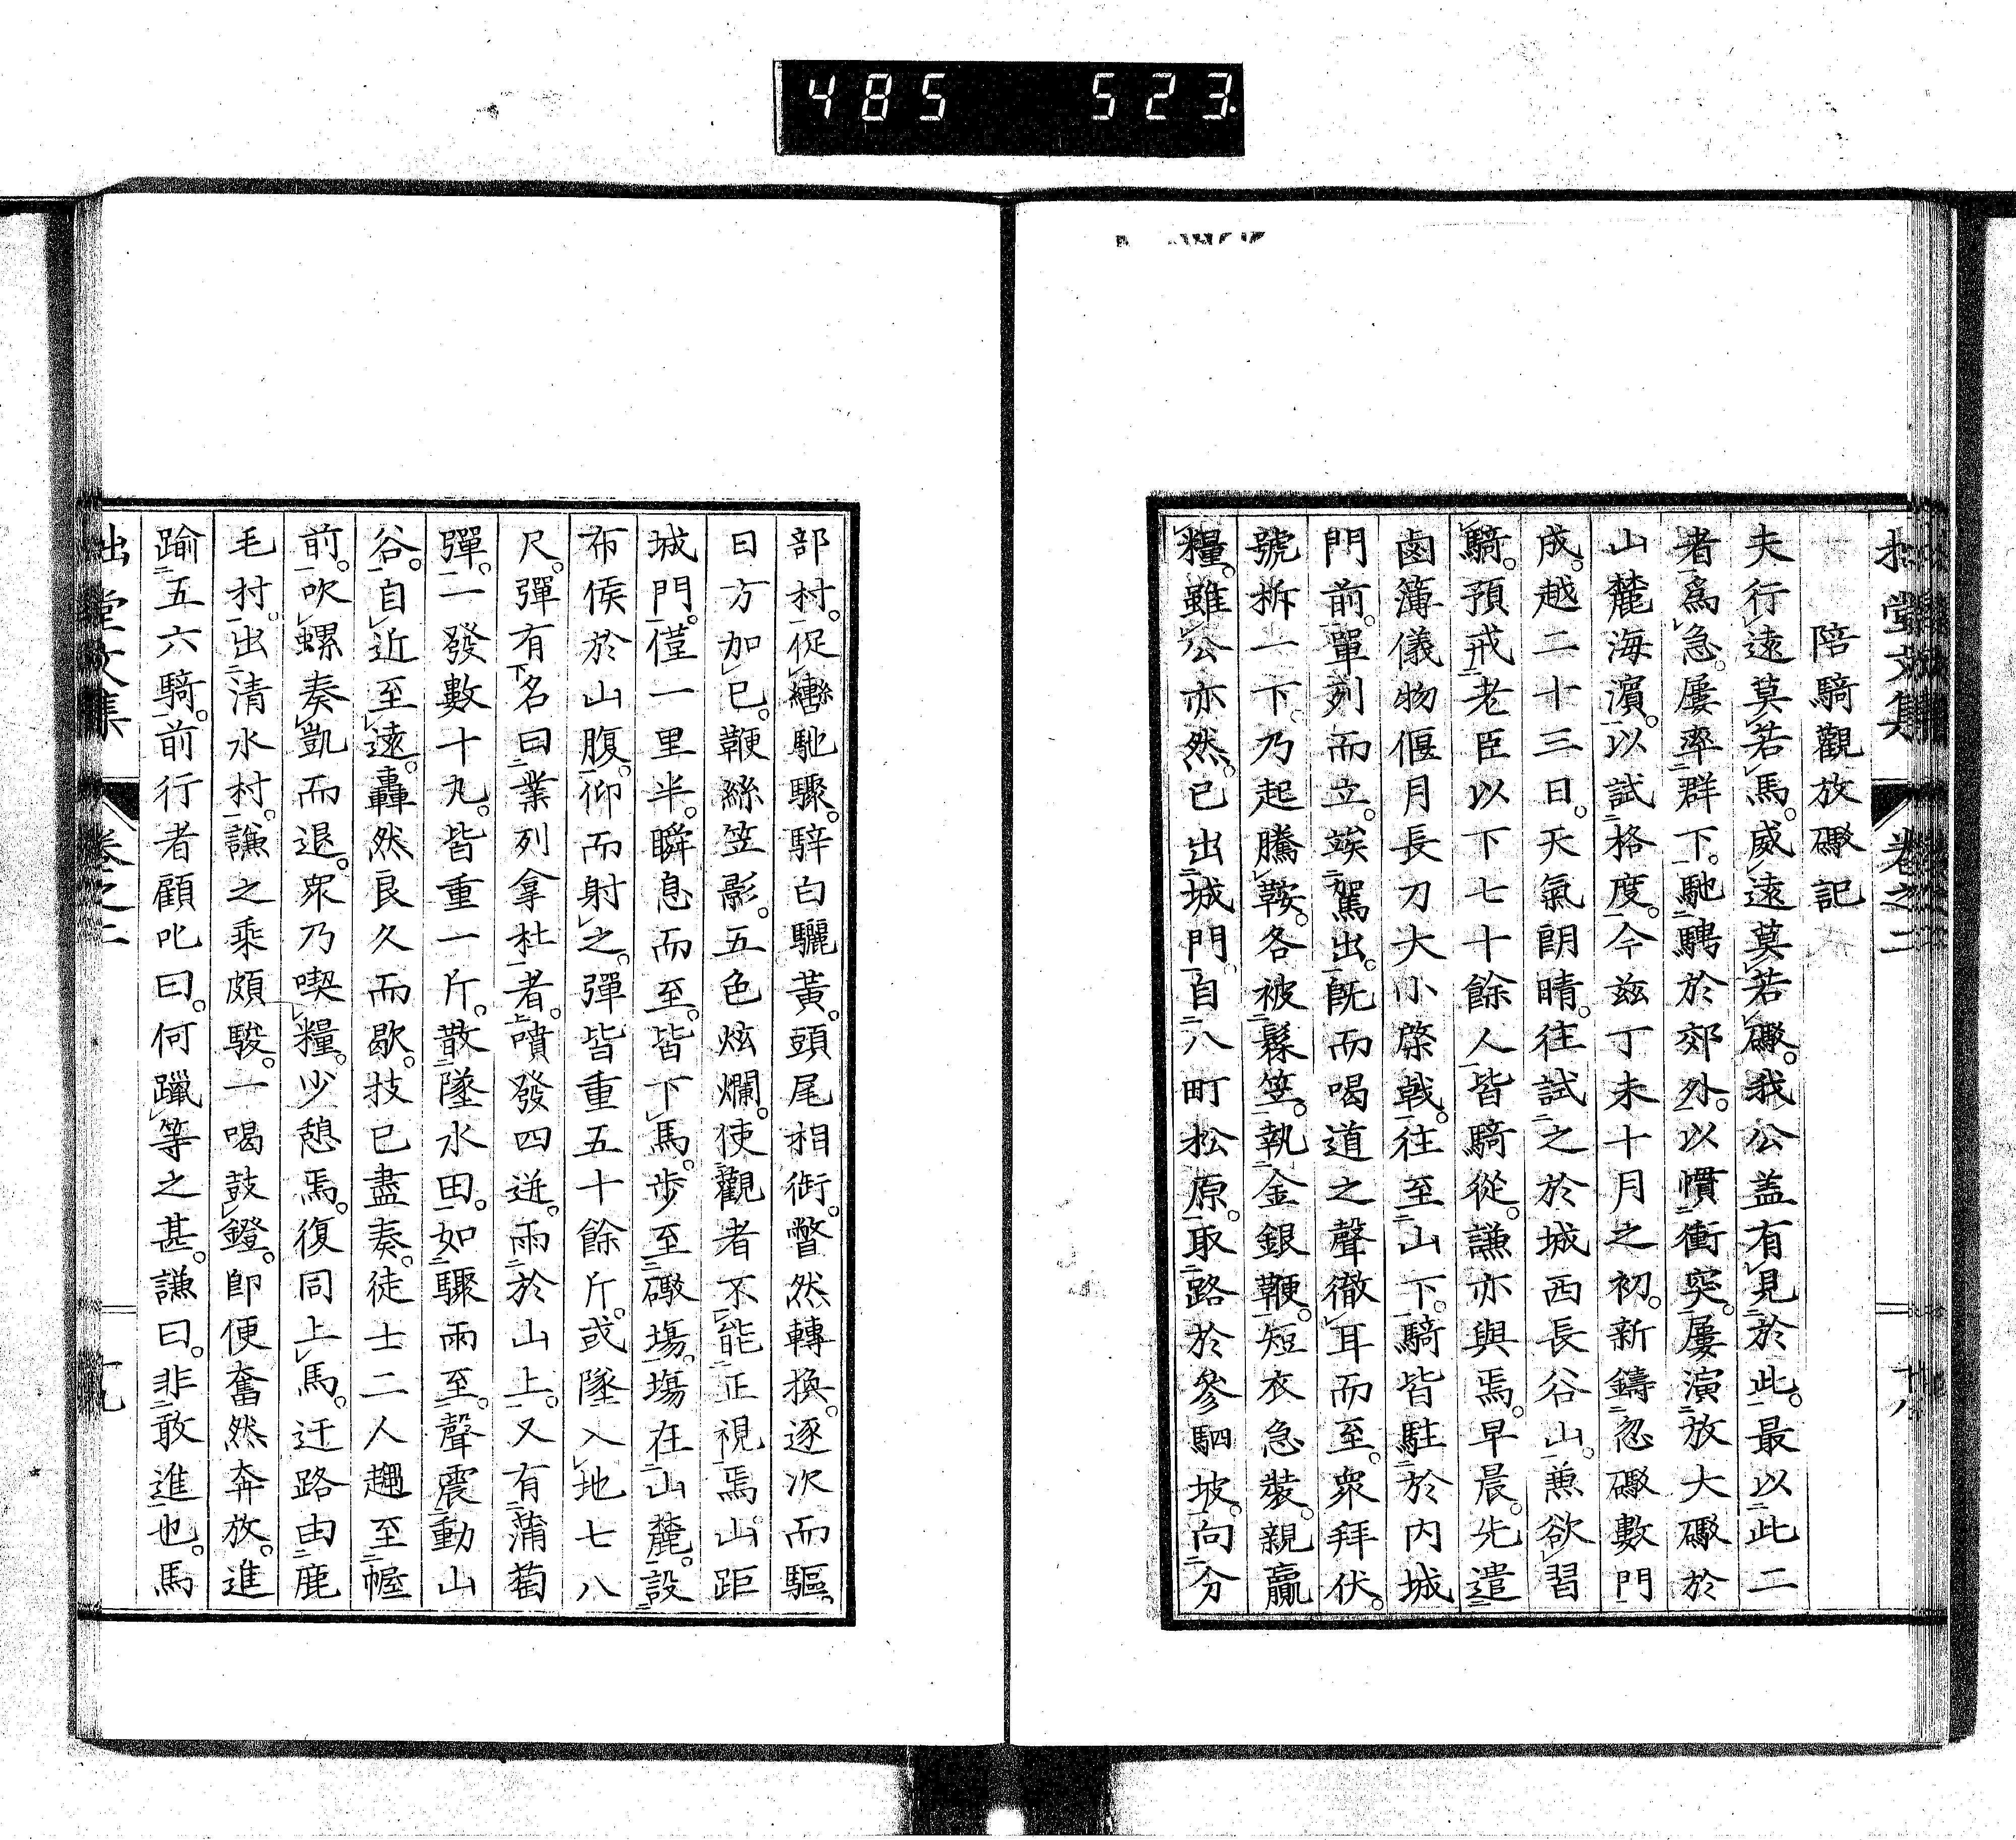 485 523.
拙堂文集 卷之二 十八
陪騎觀放礮記
夫行遠莫若馬。威遠莫若礮。我公盖有見於此。最以此二
者爲急。屢率群下。馳騁於郊外。以慣衝突。屢演放大礮於
山麓海濵。以試格度。今兹丁未十月之初。新鑄忽礮數門
成。越二十三日。天氣朗晴。往試之於城西長谷山。兼欲習
騎。預戒老臣以下七十餘人皆騎從。謙亦與焉。早晨。先遣
鹵簿儀物偃月長刀大小棨戟。往至山下。騎皆駐於内城
門前。單列而立。竢駕出。既而喝道之聲徹耳而至。衆拜伏。
號拆一下。乃起騰鞍。各被鬃笠。執金銀鞭。短衣急裝。親贏
糧。雖公亦然。已出城門。自八町松原。取路於參駟坡。向分
部村。促轡馳驟。騂白驪黃。頭尾相銜。瞥然轉換。逐次而驅。
日方加巳。鞭絲笠影。五色炫爛。使觀者不能正視焉。山距
城門。僅一里半。瞬息而至。皆下馬。步至礮塲。塲在山麓。設
布侯於山腹。仰而射之。彈皆重五十餘斤。或墜入地七八
尺。彈有名曰業列拿杜者。噴發四迸。雨於山上。又有蒲萄
彈。一發數十丸。皆重一斤。散墜水田。如驟雨至。聲震動山
谷。自近至遠。轟然良久而歇。技已盡奏。徒士二人趨至幄
前。吹螺奏凱而退。衆乃喫糧。少憩焉。復同上馬。迂路由鹿
毛村。出清水村。謙之乘頗駿。一喝鼓鐙。即便奮然奔放。進
踰五六騎。前行者顧叱曰。何躐等之甚。謙曰。非敢進也。馬
拙堂文集 卷之二 十九